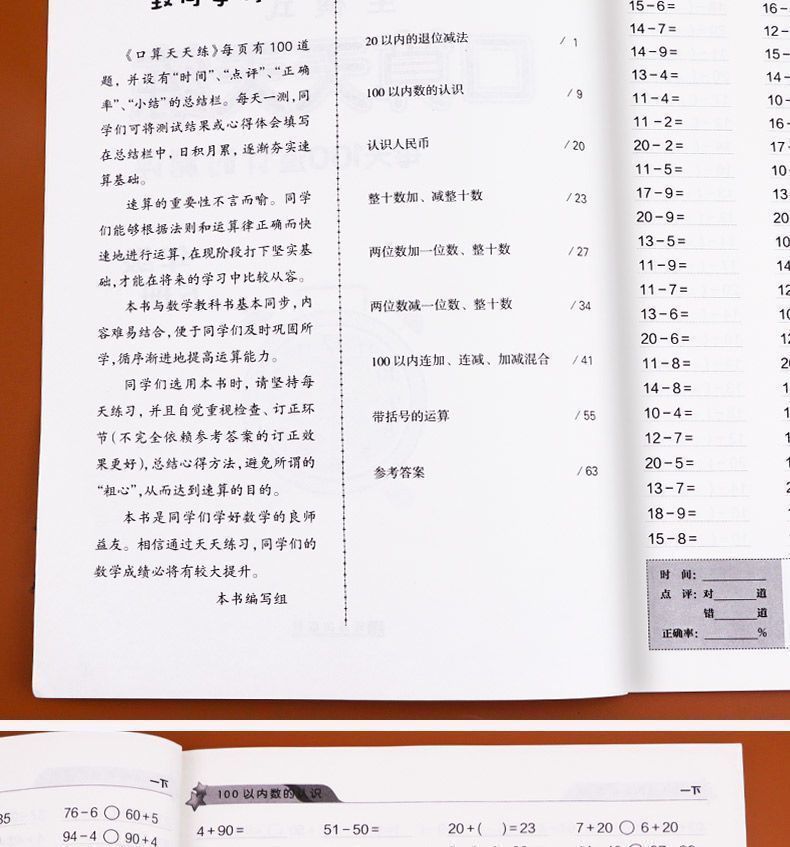 《口算天天练》每页有 100 道
题，并设有“时间”、“点评”、“正确
率”、“小结”的总结栏。每天一测，同
学们可将测试结果或心得体会填写
在总结栏中，日积月累，逐渐夯实速
算基础。
速算的重要性不言而喻。同学
们能够根据法则和运算律正确而快
速地进行运算，在现阶段打下坚实基
础，才能在将来的学习中比较从容。
本书与数学教科书基本同步，内
容难易结合，便于同学们及时巩固所
学，循序渐进地提高运算能力。
同学们选用本书时，请坚持每
天练习，并且自觉重视检查、订正环
节（不完全依赖参考答案的订正效
果更好），总结心得方法，避免所谓的
“粗心”，从而达到速算的目的。
本书是同学们学好数学的良师
益友。相信通过天天练习，同学们的
数学成绩必将有较大提升。
本书编写组
20 以内的退位减法 / 1
100 以内数的认识 / 9
认识人民币 / 20
整十数加、减整十数 / 23
两位数加一位数、整十数 / 27
两位数减一位数、整十数 / 34
100 以内连加、连减、加减混合 / 41
带括号的运算 / 55
参考答案 / 63
15－6＝ 16－
14－7＝ 12－
14－9＝ 15－
13－4＝ 14－
11－4＝ 10－
11－2＝ 16－
20－2＝ 17
11－5＝ 10
17－9＝ 13
20－9＝ 20
13－5＝ 10
11－9＝ 14
11－7＝
13－6＝
20－6＝
11－8＝
14－8＝
10－4＝
12－7＝
20－5＝
13－7＝
18－9＝
15－8＝
时 间：
点 评：对 道
错 道
正确率： %
一下
76－6 ○ 60＋5
94－4 ○ 90＋4
100 以内数的认识
一下
4＋90＝ 51－50＝ 20＋( )＝23 7＋20 ○ 6＋20